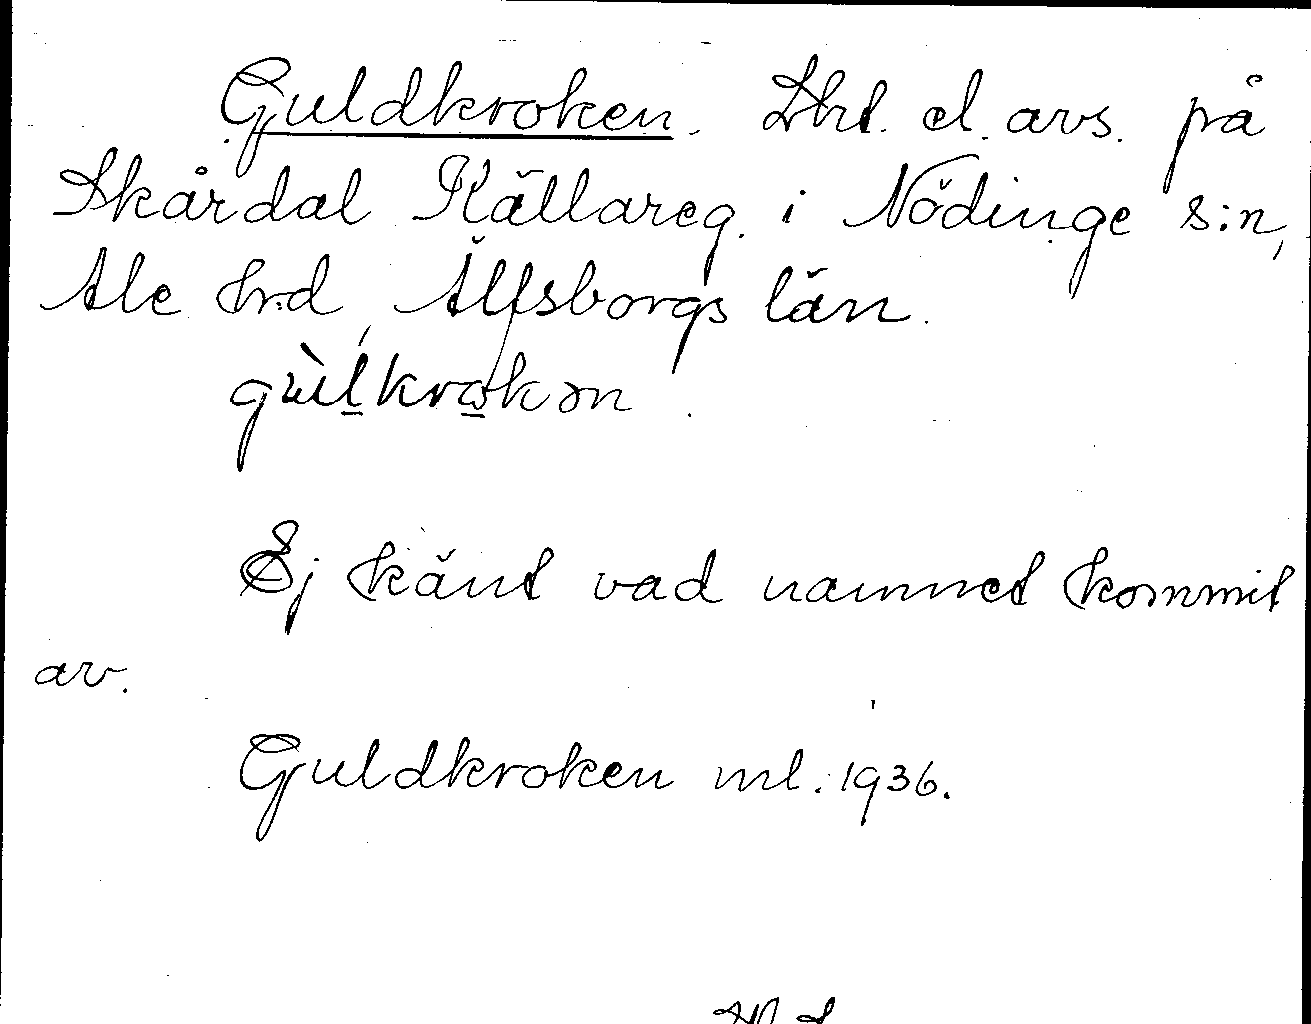 Guldkroken. Lht. el. avs. på
Skårdal Källareg. i Nödinge s:n,
Ale hrd, Älfsborgs län.
gùlkrokən.
Ej känt vad namnet kommit
av.
Guldkroken ml. 1936.